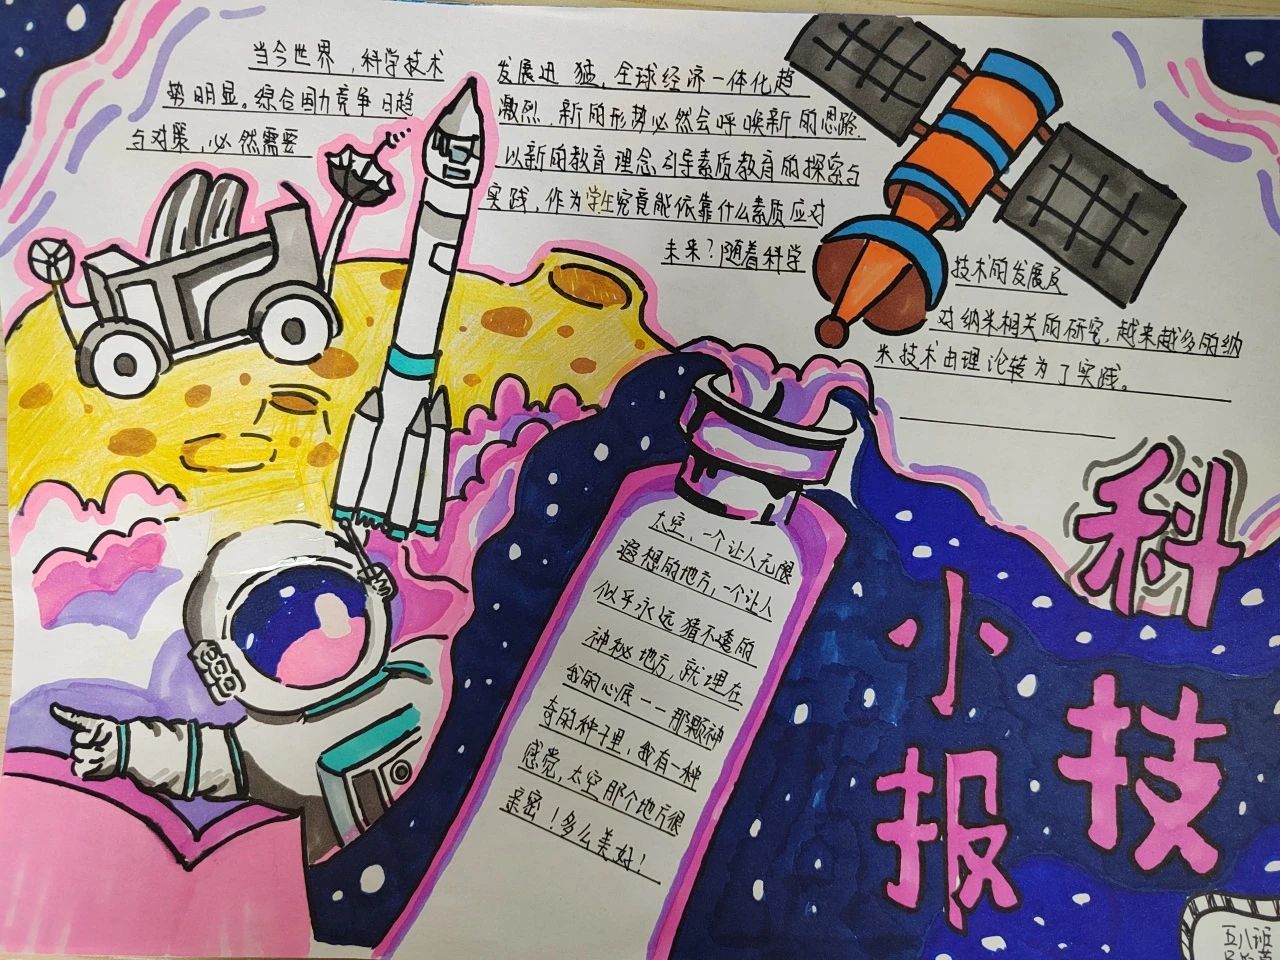 当今世界，科学技术
发展迅猛，全球经济一体化趋
势明显。综合国力竞争日趋
激烈，新的形势必然会呼唤新的思路
与对策，必然需要
以新的教育理念引导素质教育的探索与
实践，作为学生究竟能依靠什么素质应对
未来？随着科学
技术的发展及
对纳米相关的研究，越来越多的纳
米技术由理论转为了实践。
太空、一个让人无限
遐想的地方，一个让人
似乎永远猜不透的
神秘地方，就埋在
我的心底——那颗神
奇的种子里，我有一种
感觉，太空那个地方很
亲密！多么美好！
科技
小报
五八班